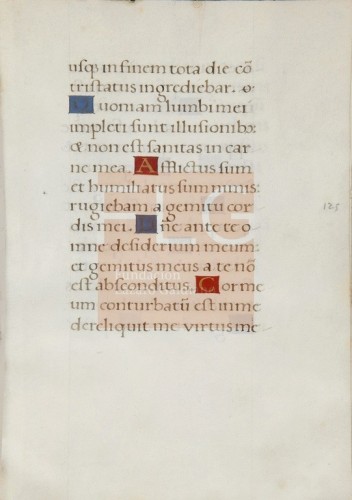 usq; in finem tota die cō
tristatus ingrediebar.
Quoniam lumbi mei
impleti sunt illusionib;
& non est sanitas in car
ne mea. Afflictus sum
et humiliatus sum nimis:
rugiebam a gemitu cor
dis mei. Dñe ante te o
mne desiderium meum:
et gemitus meus a te nō
est absconditus. Cor me
um conturbatū est in me
dereliquit me virtus me
125
HLG
Fundación